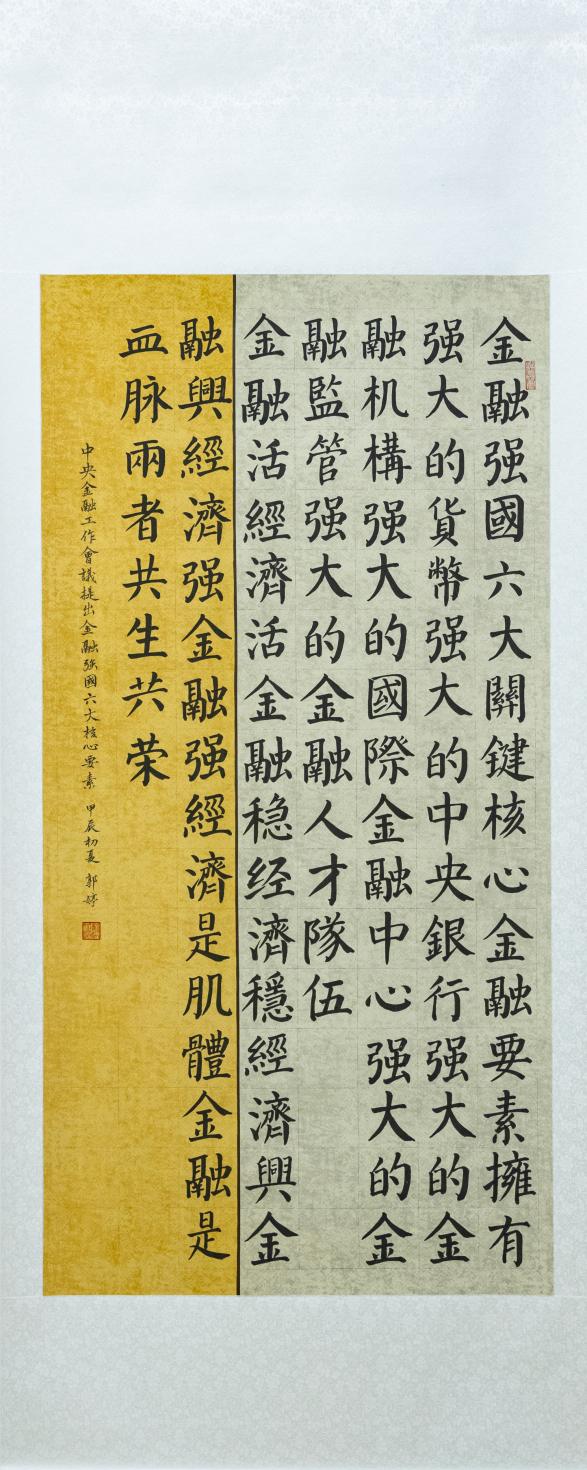 金融强國六大關鍵核心金融要素擁有
强大的貨幣强大的中央銀行强大的金
融机構强大的國際金融中心强大的金
融監管强大的金融人才隊伍
金融活經濟活金融稳经濟穩經濟興金
融興經濟强金融强經濟是肌體金融是
血脉兩者共生共荣
中央金融工作會議提出金融强國六大核心要素 甲辰初夏 郭婷